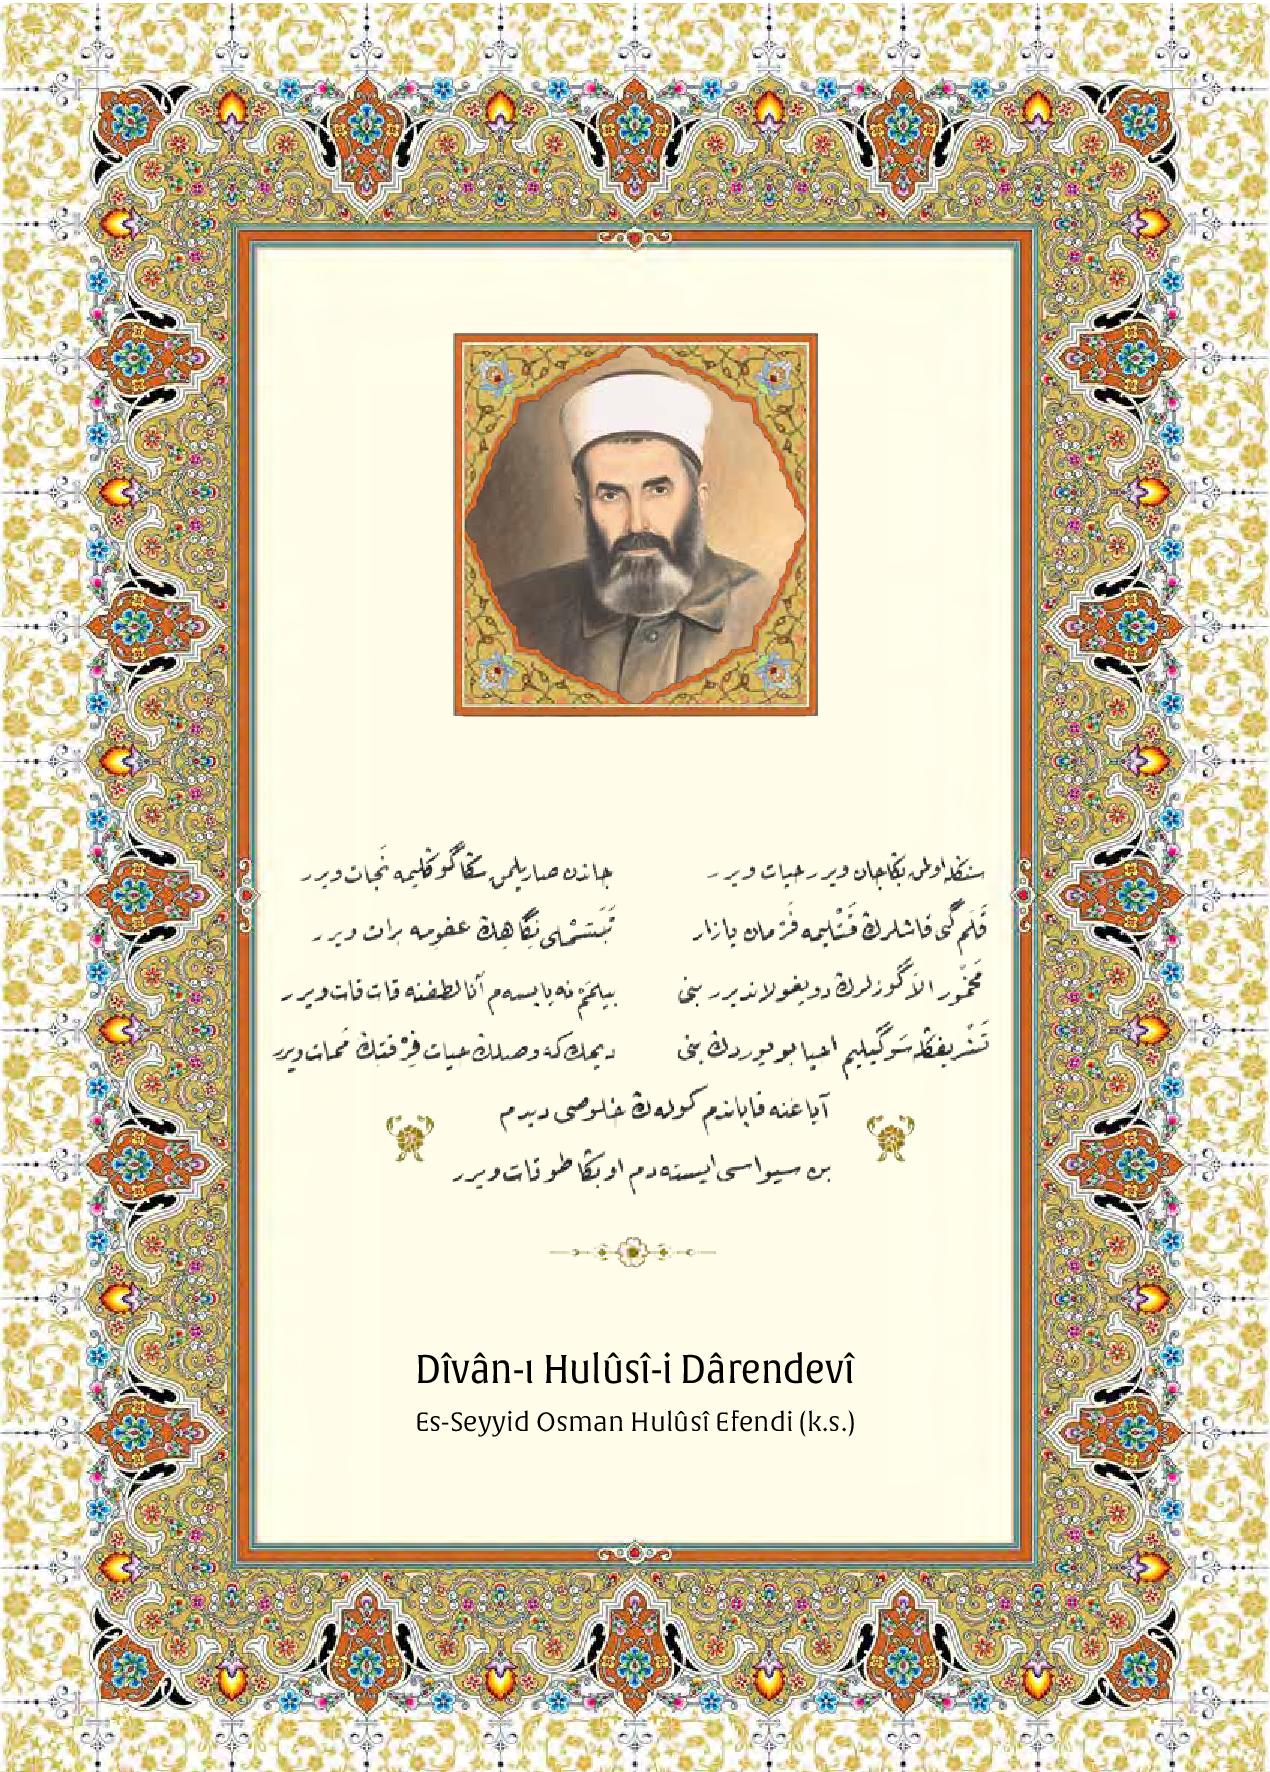 سنكله اولمق بكا جان ويرر حيات ويرر
جاندن صاريلمق سكا گوكليمه نجات ويرر
قلم گبی قاشلرڭ قتليمه فرمان يازار
تبسملی نگاهڭ عفومه برات ويرر
مخمور الا گوزلرڭ دويغولانديرر بنی
بيلمم نه ياپسه‌م آنا لطفنه قات قات ويرر
تشريفڭله سوگيليم احيا بويوردڭ بنی
ديمك كه وصلڭ حيات فرقتڭ ممات ويرر
آياغنه قاپاندم كوله‌ڭ خلوصی ديدم
بن سيواسی ايسته‌دم او بكا طوقات ويرر
Dîvân-ı Hulûsî-i Dârendevî
Es-Seyyid Osman Hulûsî Efendi (k.s.)